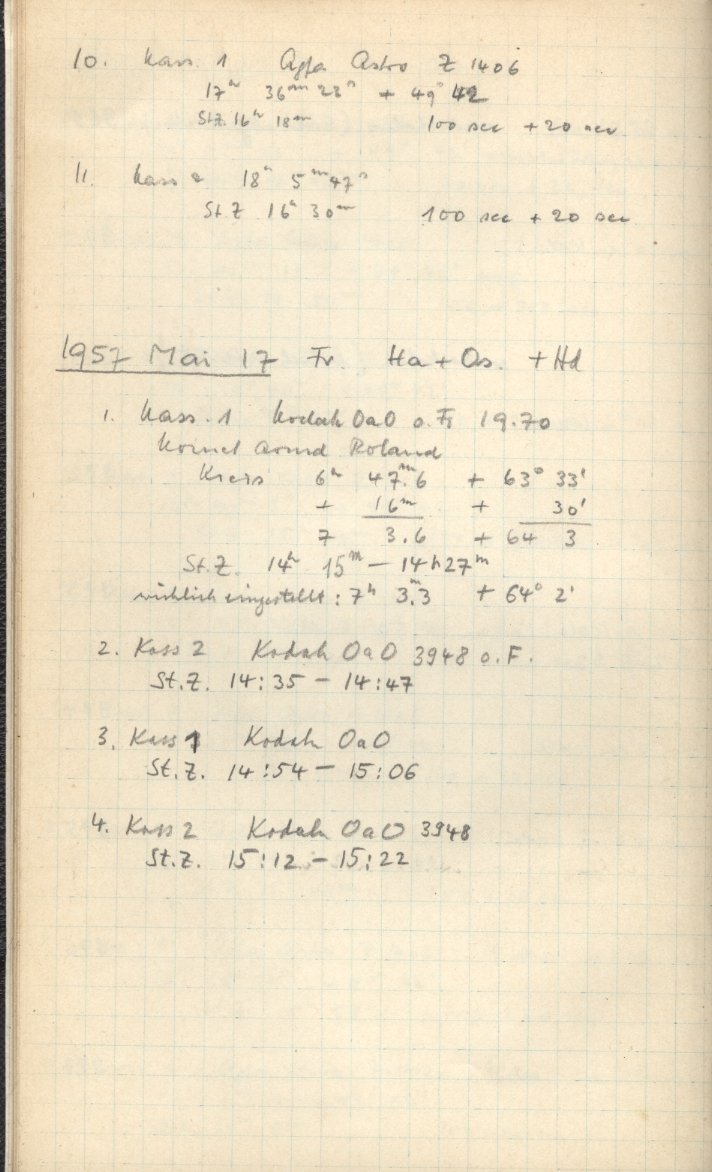 10. Kass. 1 Agfa Astro Z 1406
17h 36m 22s + 49° 42
St.Z. 16h 18m 100 sec + 20 sec
11. Kass 2 18h 5m 47s
St.Z 16h 30m 100 sec + 20 sec
1957 Mai 17 Fr. Ha + Os. + Hd
1. Kass. 1 Kodak OaO o. F. 19.70
Komet Arend Roland
Kreis 6h 47.m6 + 63° 33'
+ 16m + 30'
7 3.6 + 64 3
St.Z. 14h 15m – 14h 27m
wirklich eingestellt: 7h 3.m3 + 64° 2'
2. Kass 2 Kodak OaO 3948 o. F.
St.Z. 14:35 – 14:47
3. Kass 1 Kodak OaO
St.Z. 14:54 – 15:06
4. Kass 2 Kodak OaO 3948
St.Z. 15:12 – 15:22